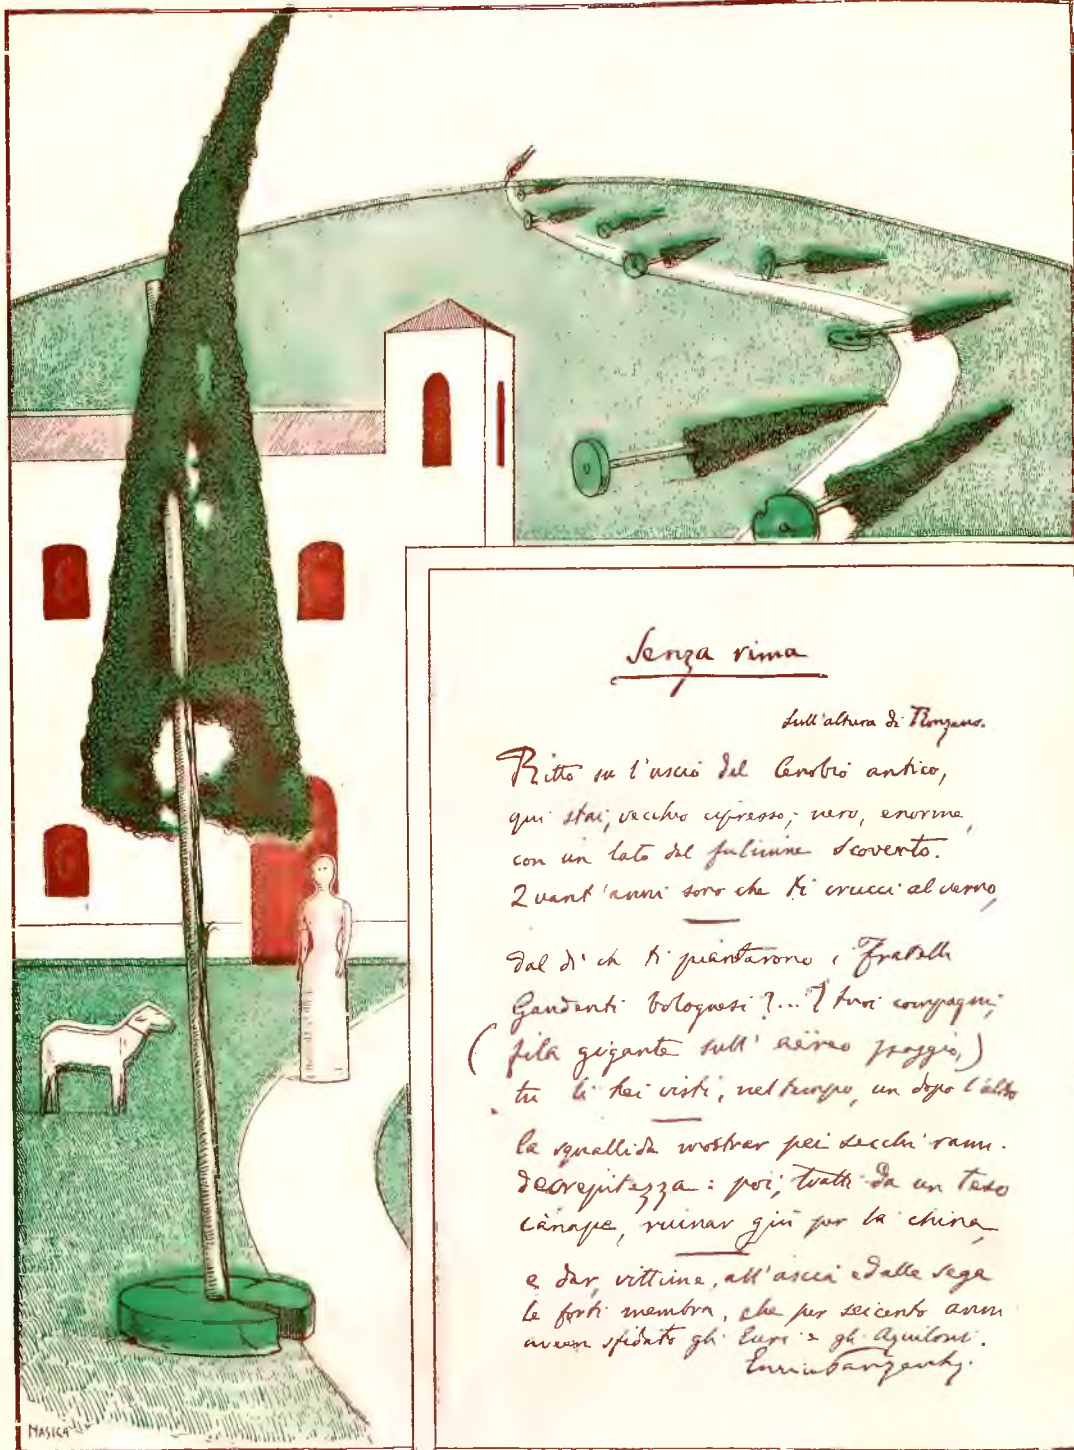 Senza rima
Sull'altura di Ronzano.
Ritto su l'uscio del Cenobio antico,
qui stai, vecchio cipresso; nero, enorme,
con un lato dal fulmine scoverto.
Quant'anni sono che ti crucci al verno,
dal dì che ti piantarono i Fratelli
Gaudenti bolognesi?... I tuoi compagni,
(fila gigante sull'aëreo poggio,)
tu li hai visti, nel tempo, un dopo l'altro
la squallida mostrar pei secchi rami
decrepitezza: poi, tratti da un teso
cànape, ruinar giù per la china,
e dar, vittime, all'ascia e dalle sega
le forti membra, che per seicento anni
avean sfidato gli Euri e gli Aquiloni.
Enrico Panzacchi.
NASICA